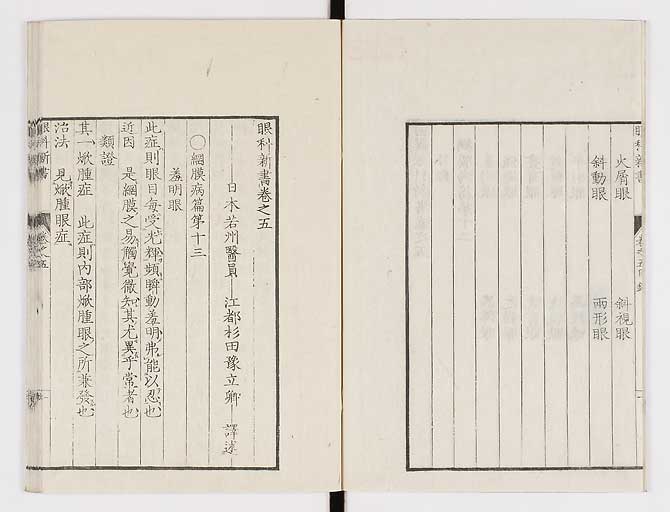 眼科新書
卷之五目錄
火屑眼 斜視眼
斜動眼 兩形眼
眼科新書卷之五
日本若州醫員 江都杉田豫立卿 譯述
〇網膜病篇第十三
羞明眼
此症則眼目每受光輝頻瞬動羞明弗能以忍也
近因 是網膜之易觸覺微知其尤異乎常者也
類證
其一焮腫症 此症則内部焮腫眼之所兼發也
治法 見焮腫眼症
眼科新書
卷之五